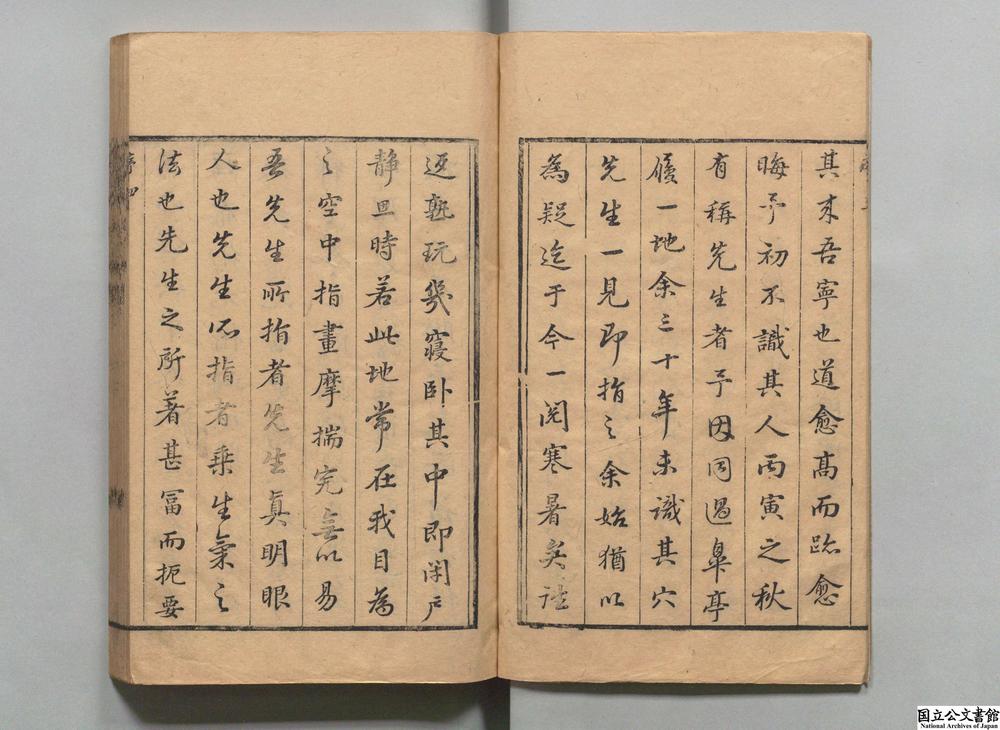 其來吾寧也道愈髙而跡愈
晦予初不識其人丙寅之秋
有稱先生者予因同過臯亭
履一地余三十年未識其穴
先生一見即指之余始猶以
為疑迄于今一閱寒暑矣
返熟玩幾寢卧其中即閉戸
静思時若此地常在我目為
之空中指畫摩揣完無以易
吾先生所指者先生真明眼
人也先生所指者乗生氣之
法也先生之所著甚冨而扼要
序四
国立公文書館
National Archives of Japan